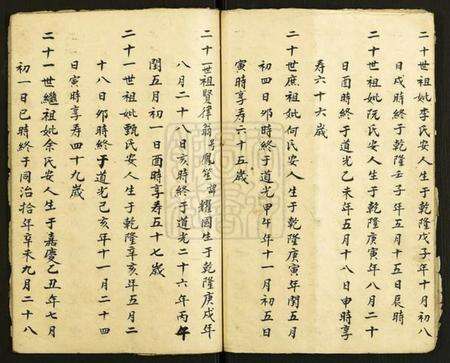 二十世祖妣李氏安人生于乾隆戊子年十月初八
日戌時終于乾隆壬子年五月十五日辰時
二十世祖妣阮氏安人生于乾隆庚寅年八月二十
日酉時終于道光乙未年五月十八日申時享
壽六十六歲
二十世庶祖妣何氏安人生于乾隆庚寅年閏五月
初四日卯時終于道光甲午年十一月初五日
寅時享壽六十五歲
二十一世祖賢律翁号鳳笙諱耀國生于乾隆庚戌年
八月二十八日亥時終于道光二十六年丙午
閏五月初一日酉時享壽五十七歲
二十一世祖妣甄氏安人生于乾隆辛亥年五月二
十八日卯時終于道光己亥年十一月二十四
日寅時享壽四十九歲
二十一世繼祖妣余氏安人生于嘉慶乙丑年七月
初一日巳時終于同治拾年辛未九月二十八